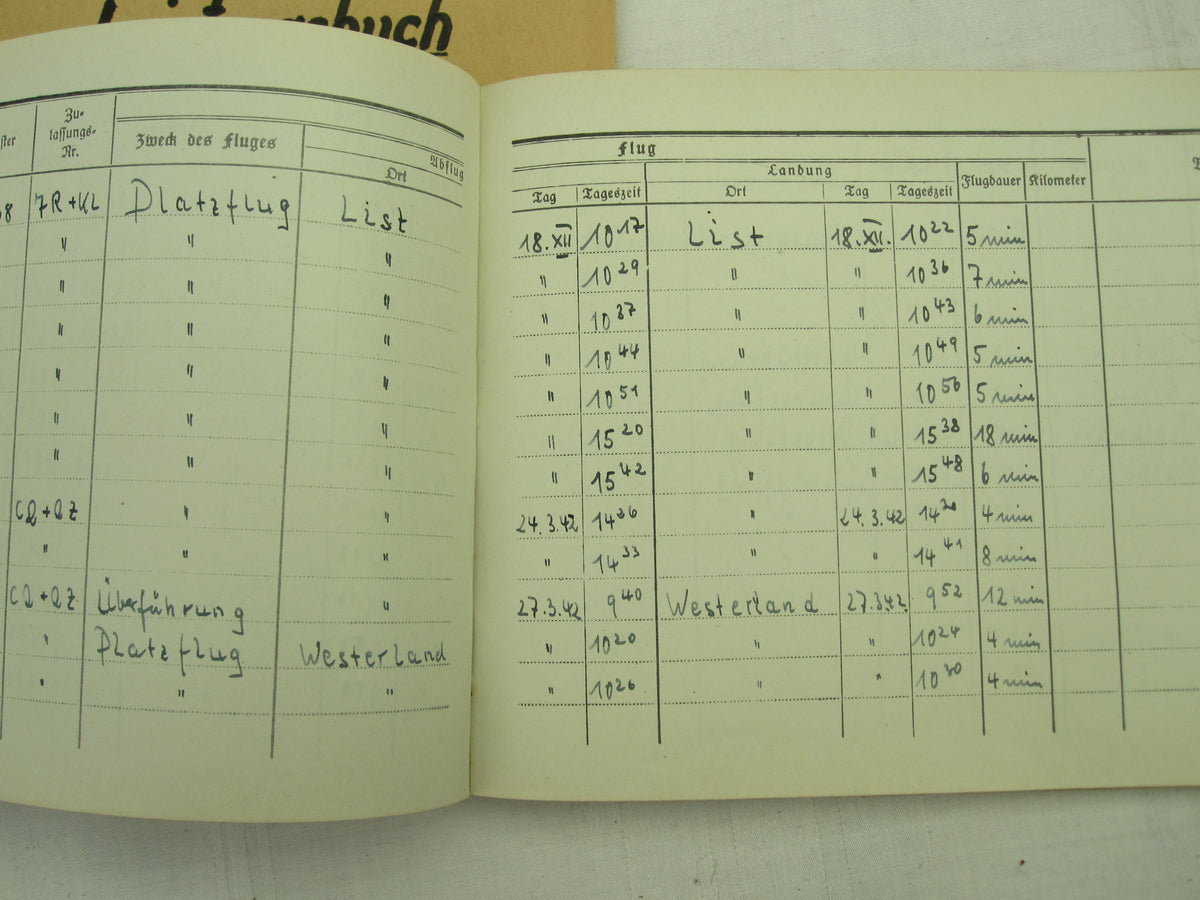 buch
Zu-
lassungs-
Nr.
Zweck des Fluges
Abflug
Ort
Flug
Landung
Tag Tageszeit Ort Tag Tageszeit Flugdauer Kilometer
8 7R+KL Platzflug List 18.XII 10 17 List 18.XII. 10 22 5 min
" " " " 10 29 " " 10 36 7 min
" " " " 10 37 " " 10 43 6 min
" " " " 10 44 " " 10 49 5 min
" " " " 10 51 " " 10 56 5 min
" " " " 15 20 " " 15 38 18 min
" " " " 15 42 " " 15 48 6 min
CQ+QZ " " 24.3.42 14 26 " 24.3.42 14 30 4 min
" " " " 14 33 " " 14 41 8 min
CQ+QZ Überführung " 27.3.42 9 40 Westerland 27.3.42 9 52 12 min
" Platzflug Westerland " 10 20 " " 10 24 4 min
" " " " 10 26 " " 10 30 4 min